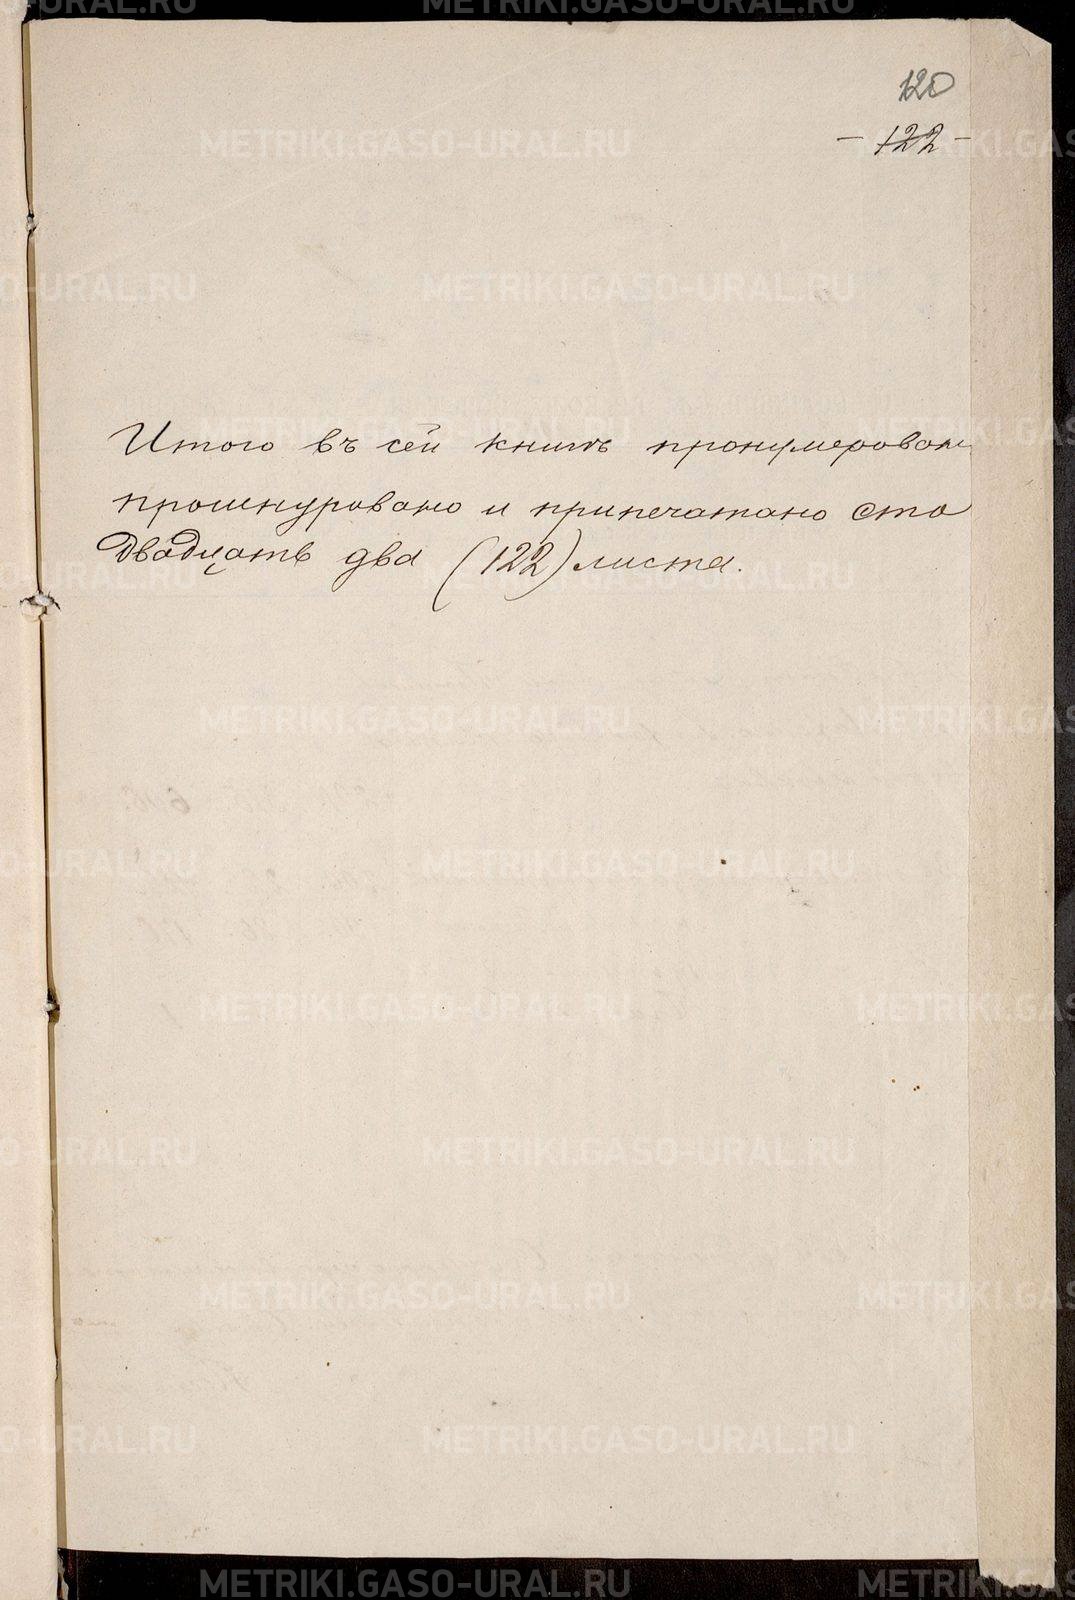 120
- 122 -
Итого въ сей книгѣ пронумерован
прошнуровано и припечатано сто
двадцать два (122) листа.
METRIKI.GASO-URAL.RU